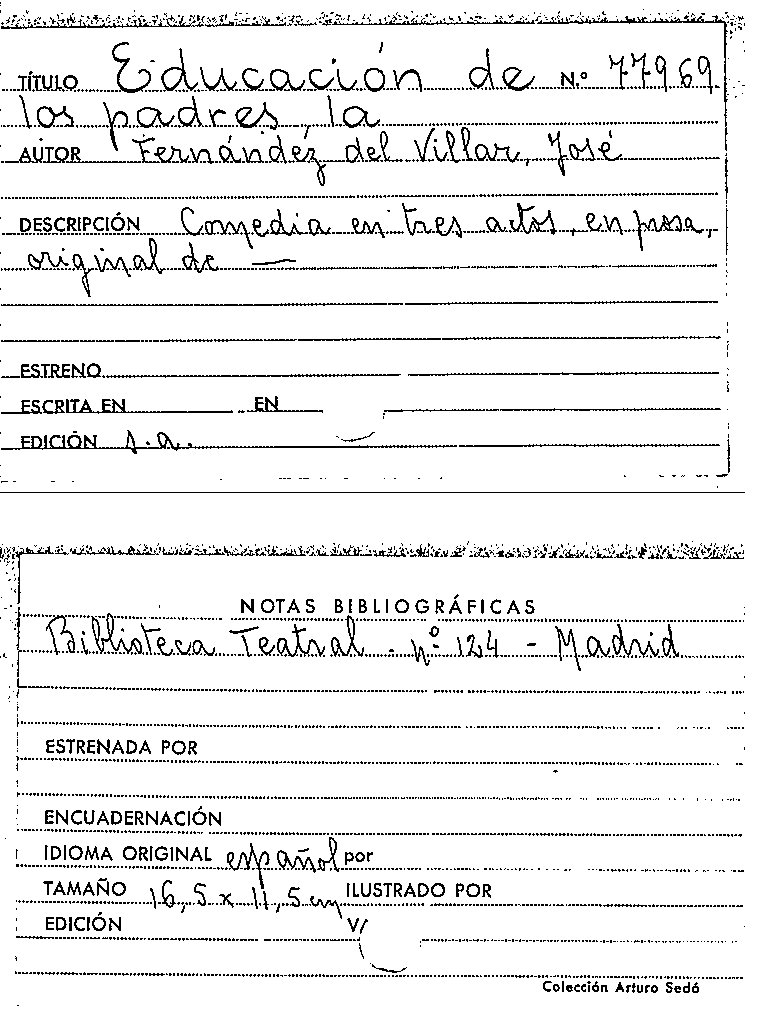 TÍTULO Educación de N.º 77969
los padres, la
AUTOR Fernández del Villar, José
DESCRIPCIÓN Comedia en tres actos, en prosa,
original de —
ESTRENO
ESCRITA EN EN
EDICIÓN s.a.
NOTAS BIBLIOGRÁFICAS
Biblioteca Teatral. nº 124 - Madrid
ESTRENADA POR
ENCUADERNACIÓN
IDIOMA ORIGINAL español por
TAMAÑO 16,5 x 11,5 cm ILUSTRADO POR
EDICIÓN V/
Colección Arturo Sedó